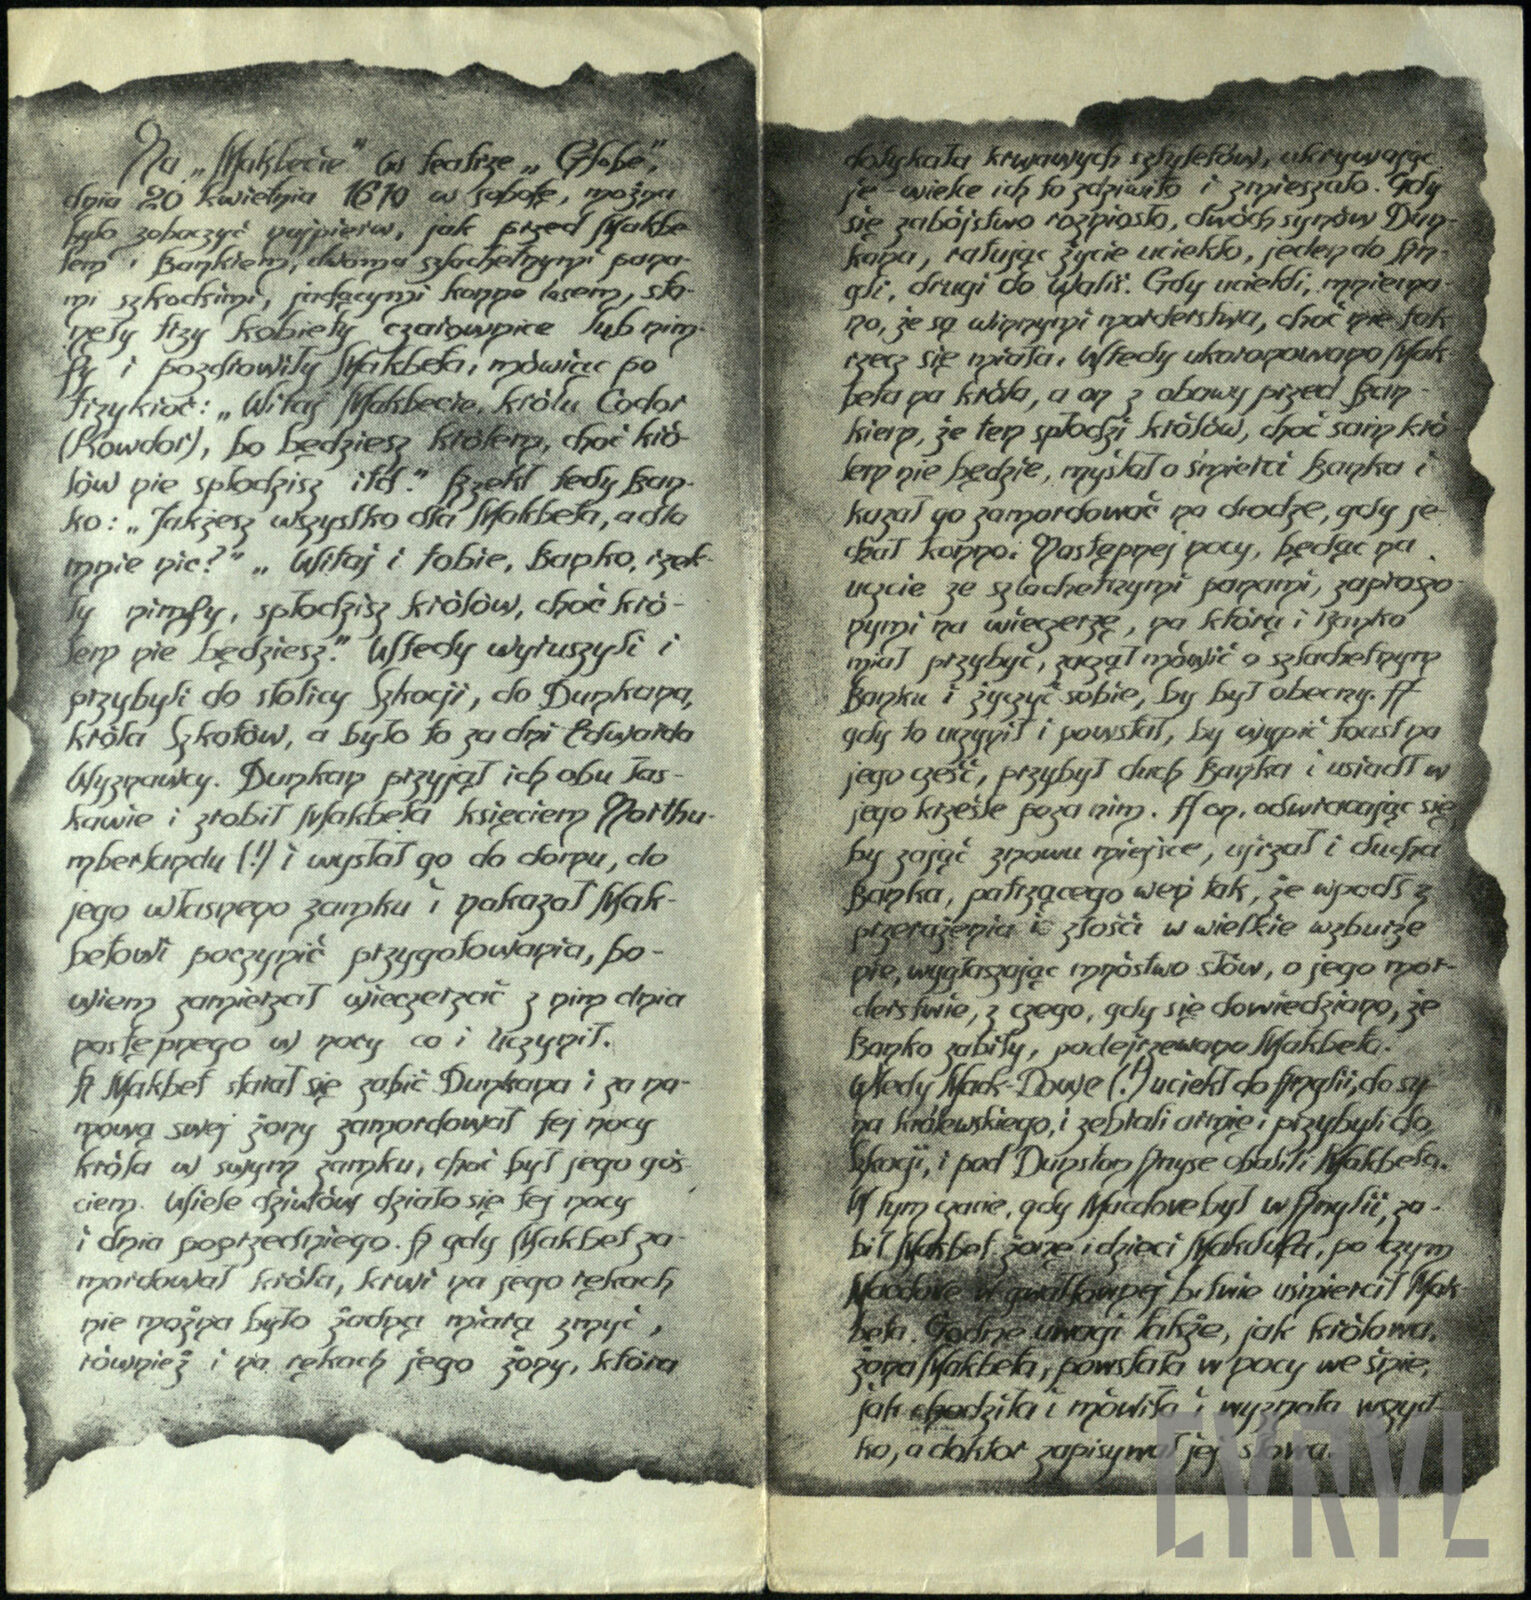 Na „Makbecie” w teatrze „Globe”,
dnia 20 kwietnia 1610 w sobotę, można
było zobaczyć najpierw, jak przed Makbe-
tem i Bankiem, dwoma szlachetnymi pana-
mi szkockimi, jadącymi konno lasem, sta-
nęły trzy kobiety czarownice lub nim-
fy i pozdrowiły Makbeta, mówiąc po
trzykroć: „Witaj Makbecie, królu Codor
(Kowdor), bo będziesz królem, choć kró-
lów nie spłodzisz itd.” Rzekł tedy Ban-
ko: „Jakżesz wszystko dla Makbeta, a dla
mnie nic?” „Witaj i tobie, Banko, rzek-
ły nimfy, spłodzisz królów, choć kró-
lem nie będziesz.” Wtedy wyruszyli i
przybyli do stolicy Szkocji, do Dunkana,
króla Szkotów, a było to za dni Edwarda
Wyznawcy. Dunkan przyjął ich obu łas-
kawie i zrobił Makbeta księciem Northu-
mberlandu (!) i wysłał go do domu, do
jego własnego zamku i nakazał Mak-
betowi poczynić przygotowania, bo-
wiem zamierzał wieczerzać z nim dnia
następnego w nocy co i uczynił.
A Makbet starał się zabić Dunkana i za na-
mową swej żony zamordował tej nocy
króla w swym zamku, choć był jego goś-
ciem. Wiele dziwów działo się tej nocy
i dnia poprzedniego. A gdy Makbet za-
mordował króla, krwi na jego rękach
nie można było żadną miarą zmyć,
również i na rękach jego żony, która
dotykała krwawych sztyletów, ukrywając
je - wielce ich to zdziwiło i zmieszało. Gdy
się zabójstwo rozniosło, dwóch synów Dun-
kana, ratując życie uciekło, jeden do An-
gli, drugi do Walii. Gdy uciekli, mniema-
no, że są winnymi morderstwa, choć nie tak
rzecz się miała. Wtedy ukoronowano Mak-
beta na króla, a on z obawy przed Ban-
kiem, że ten spłodzi królów, choć sam kró-
lem nie będzie, myślał o śmierci Banka i
kazał go zamordować na drodze, gdy je-
chał konno. Następnej nocy, będąc na
uczcie ze szlachetnymi panami, zaproszo-
nymi na wieczerzę, na którą i Banko
miał przybyć, zaczął mówić o szlachetnym
Banku i życzyć sobie, by był obecny. A
gdy to uczynił i powstał, by wypić toast na
jego cześć, przybył duch Banka i usiadł w
jego krześle poza nim. A on, odwracając się,
by zająć znowu miejsce, ujrzał i ducha
Banka, patrzącego weń tak, że wpadł z
przerażenia i złości w wielkie wzburze
nie, wygłaszając mnóstwo słów, o jego mor-
derstwie, z czego, gdy się dowiedziano, że
Banko zabity, podejrzewano Makbeta.
Wtedy Mack-Dowe (!) uciekł do Anglii, do sy-
na królewskiego, i zebrali armię i przybyli do
Szkocji, i pod Dunston Anyse obalili Makbeta.
W tym czasie, gdy Macdove był w Anglii, za-
bił Makbet żonę i dzieci Makdufa, po czym
Macdove w gwałtownej bitwie uśmiercił Mak
beta. Godne uwagi także, jak królowa,
żona Makbeta, powstała w nocy we śnie,
jak chodziła i mówiła i wyznała wszyst-
ko, a doktor zapisywał jej słowa.
CYRYL